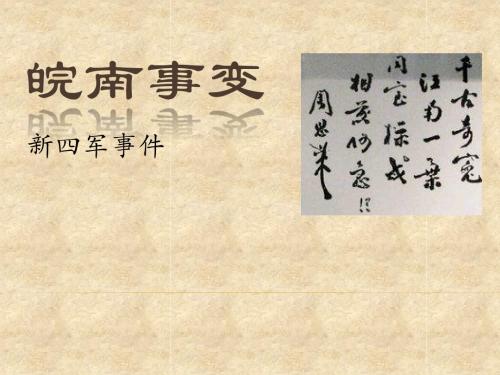 皖南事变
新四军事件
千古奇冤
江南一葉
同室操戈
相煎何急!?
周恩来